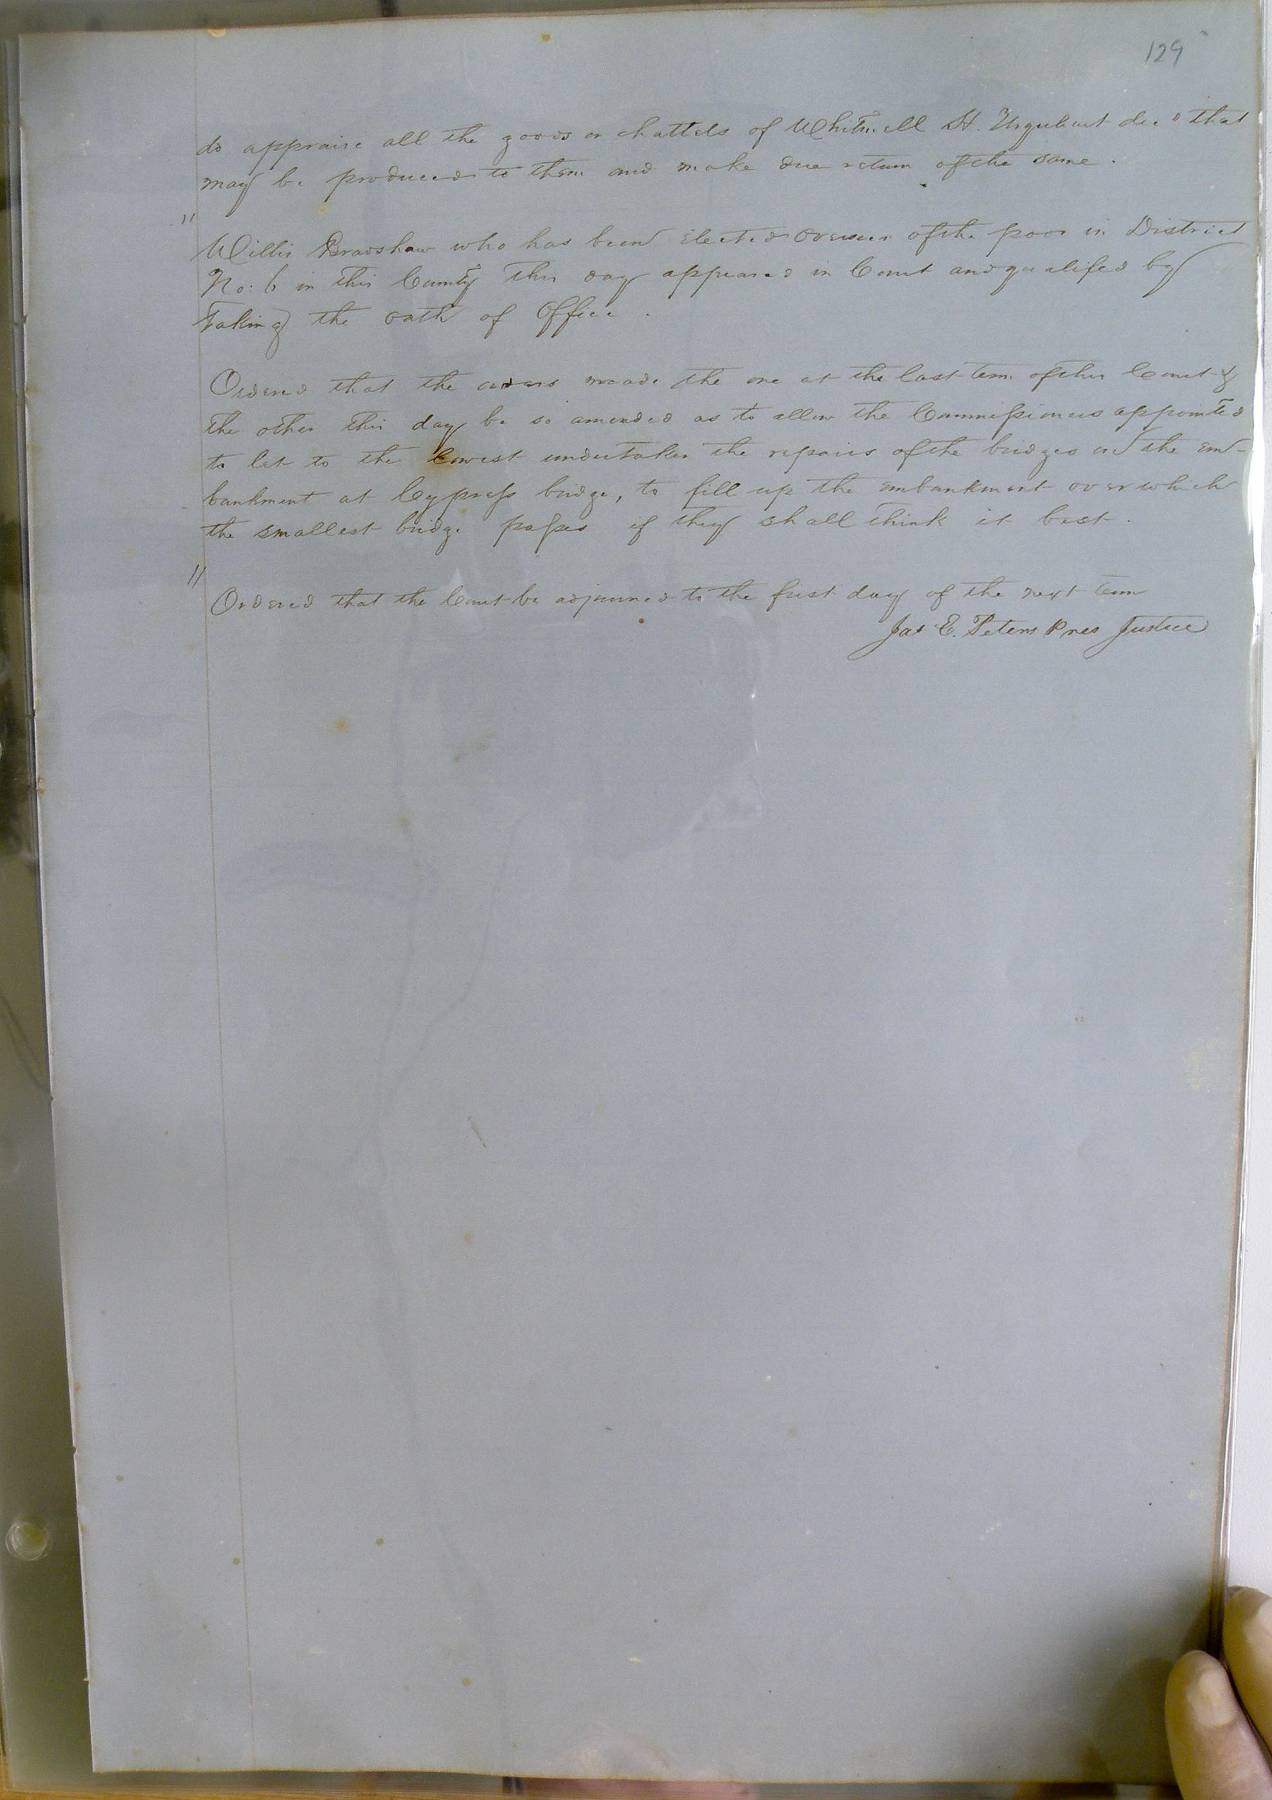 129
do appraise all the goods or chattels of Whitmell H. Urquhart dec.d that
may be produced to them and make due return of the same.
"
Willis Bradshaw who has been elected overseer of the poor in District
No. 6 in this County this day appeared in Court and qualified by
Taking the oath of Office.
Ordered that the orders made the one at the last term of this Court &
the other this day be so amended as to allow the Commissioners appointed
to let to the lowest undertaker the repairs of the bridges and the em-
bankment at Cypress bridge, to fill up the embankment over which
the smallest bridge passes if they shall think it best.
"
Ordered that the Court be adjourned to the first day of the next term
Jas E. Peters Pres Justice